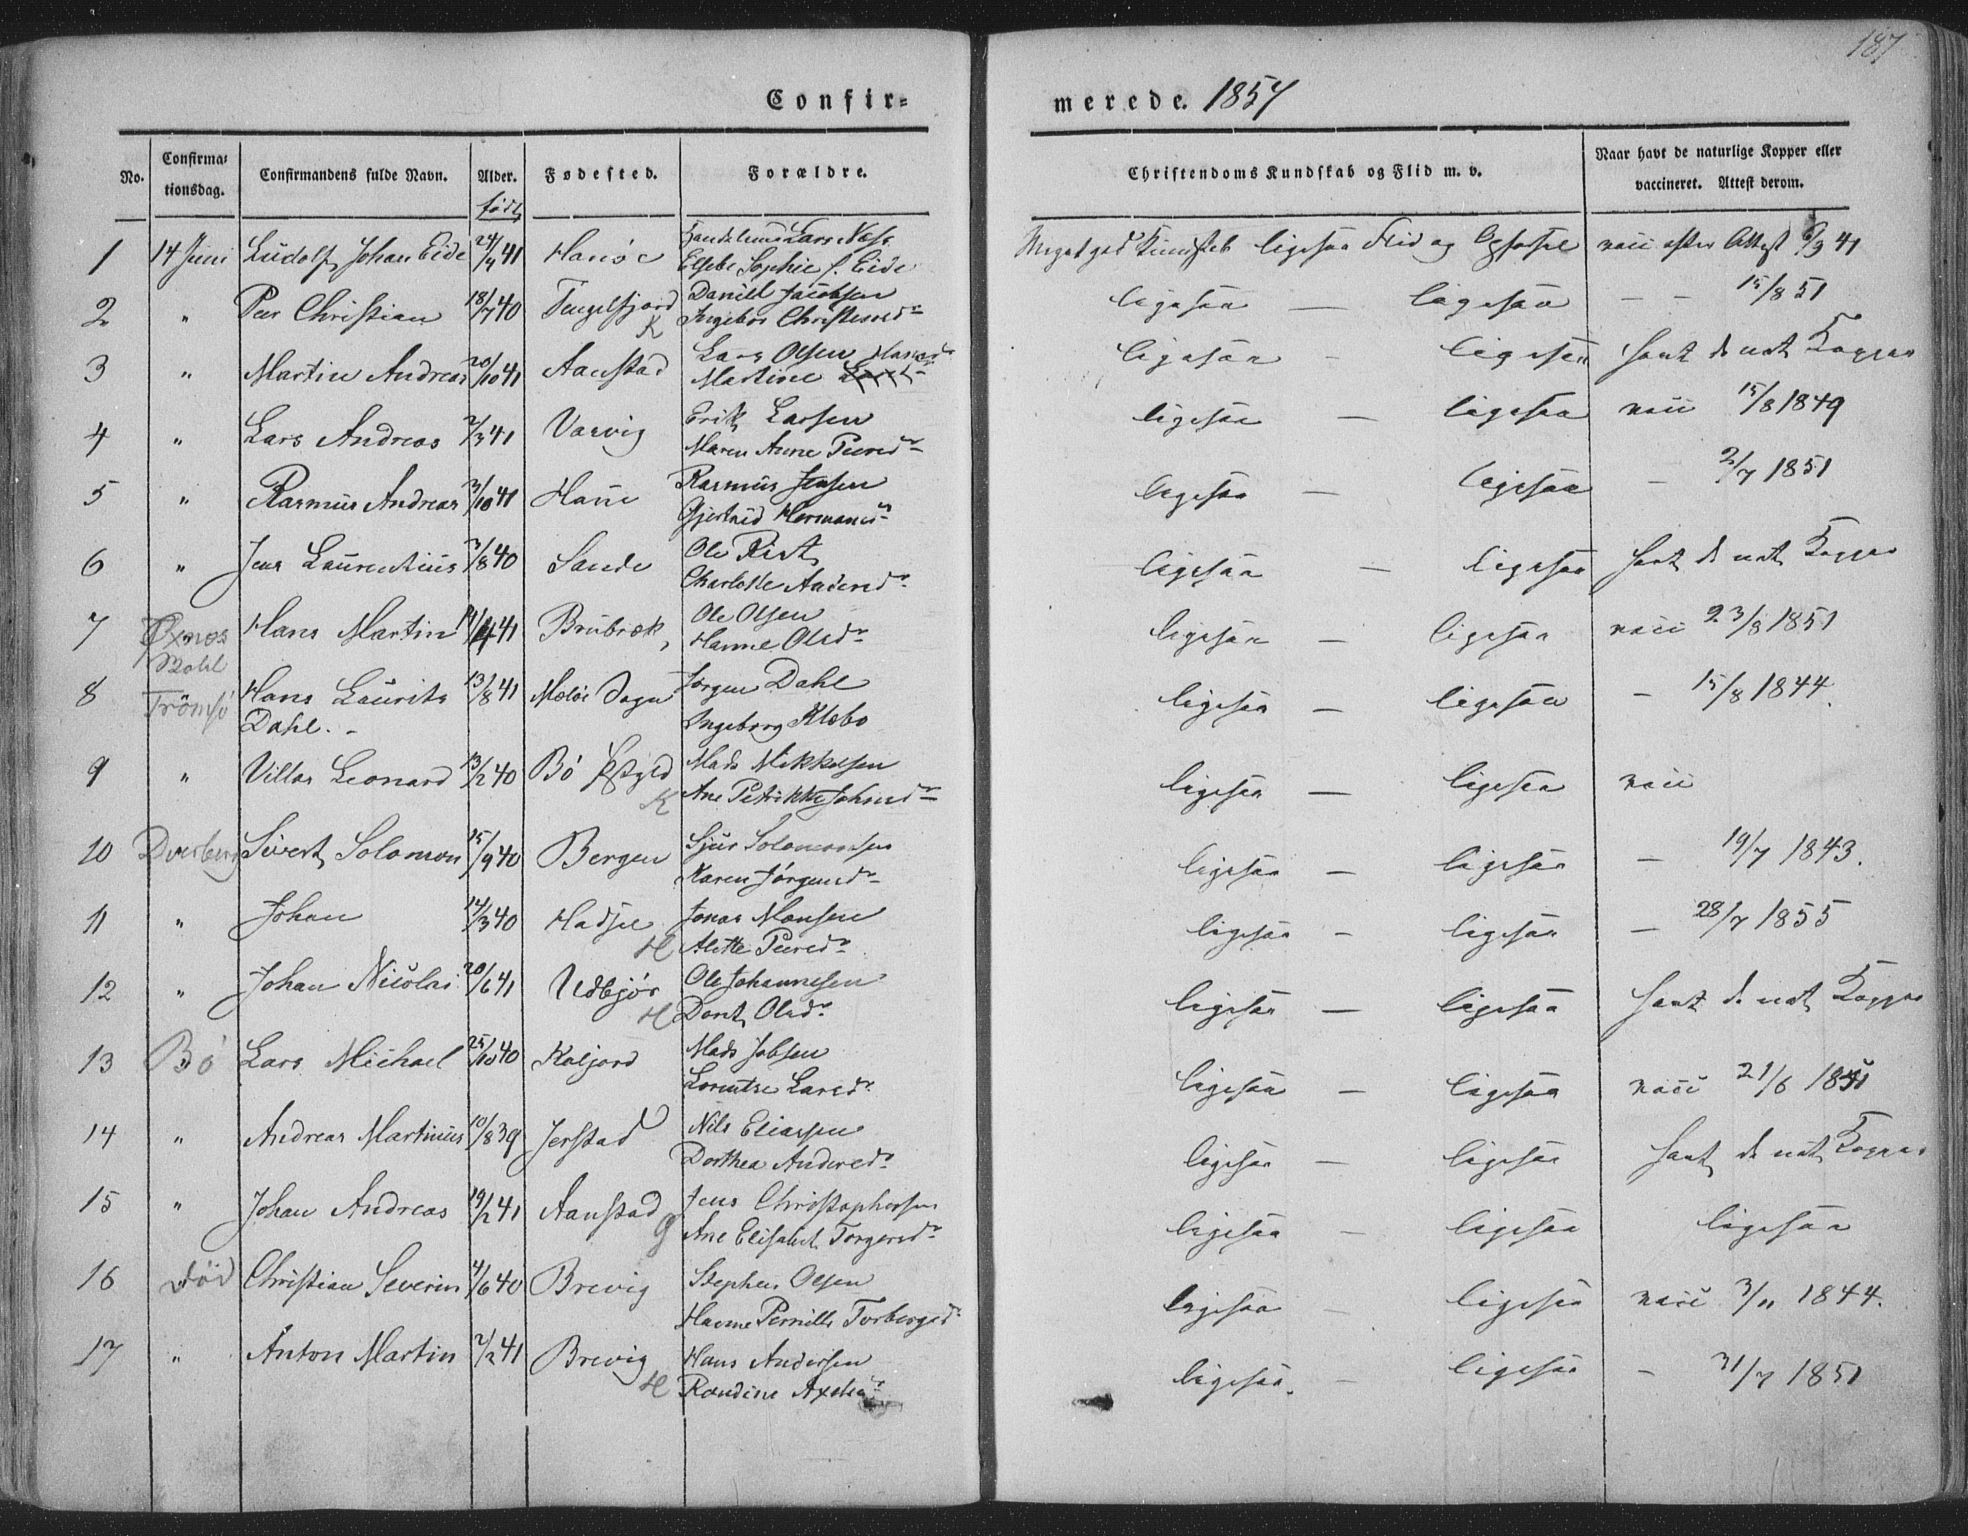 187
Confir=
merede. 1857
No. Confirma=tionsdag. Confirmandens fulde Navn. Alder. født Fødested. Forældre. Christendoms Kundskab og Flid m. v. Naar havt de naturlige Kopper eller vaccineret. Attest derom.
1 14 Juni Ludolf Johan Eide 24/4 41 Lars Næss
Elsebe Sophie f. Eide Meget god Kundskab ligesaa Flid og Opførsel vacc efter Attest 41
2 " Peer Christian 18/7 40 Tengelfjord K Daniel Jacobsen
Ingebor ligesaa — ligesaa — — 15/8 51
3 " Martin Andreas 20/10 41 Aanstad Lars Olsen
Martine ligesaa - ligesaa havt de nat Kopper
4 " Lars Andreas 2/3 41 Varvig Erik Larsen
Maren Anne Peersdr ligesaa — ligesaa vacc 15/8 1849
5 " Rasmus Andreas 3/10 41 Haue Rasmus Jensen
Gjertrud Hermansdr ligesaa — ligesaa — 2/7 1851
6 " Jens Laurentius 3/8 40 Sande Ole Rist
Charlotte Andersdr ligesaa — ligesaa havt de nat Kopper
7 Øxnes Hans Martin 14/4 41 Brubræk Ole Olsen
Hanne Olsdr ligesaa — ligesaa vacc 23/8 1851
8 Tromsø Hans Laurits
Dahl. 13/8 41 Meløe Sogn Jørgen Dahl
Ingeborg Klæbo ligesaa — ligesaa — 15/8 1844.
9 " Villas Leonard 13/2 40 Bø K Mads Mikkelsen
Ane Petrikke Johnsdr ligesaa — ligesaa vacc
10 Dverberg Sivert Solomon 15/9 40 Bergen Sjur Solomonsen
Karen Jørgensdr ligesaa — ligesaa — 19/7 1843.
11 " Johan 14/3 40 Hadsel H Jonas Monsen
Alette Peersdr ligesaa - ligesaa — 28/7 1855
12 " Johan Nicolai 20/6 41 Udbjør H Ole Johannesen
Dorit Olsdr ligesaa — ligesaa havt de nat Kopper
13 Bø Lars Michael 25/10 40 Kaljord Mads Jobsen
Lorentze Larsdr ligesaa — ligesaa vacc 21/6
14 " Andreas Martinus 10/8 39 Jerstad Nils Eliassen
Dorthea Andersdr ligesaa — ligesaa havt de nat Kopper
15 " Johan Andreas 19/2 41 Aanstad Jens Christophersen
Ane Elisabet Torgersdr ligesaa — ligesaa ligesaa
16 Død Christian Severin 4/6 40 Brevig Stephen Olsen
Hanne Pernille Torbergsdr ligesaa - ligesaa vacc 3/11 1844.
17 " Anton Martin 2/2 41 Brevig H Hans Andersen
Randine ligesaa. - ligesaa - 31/7 1851